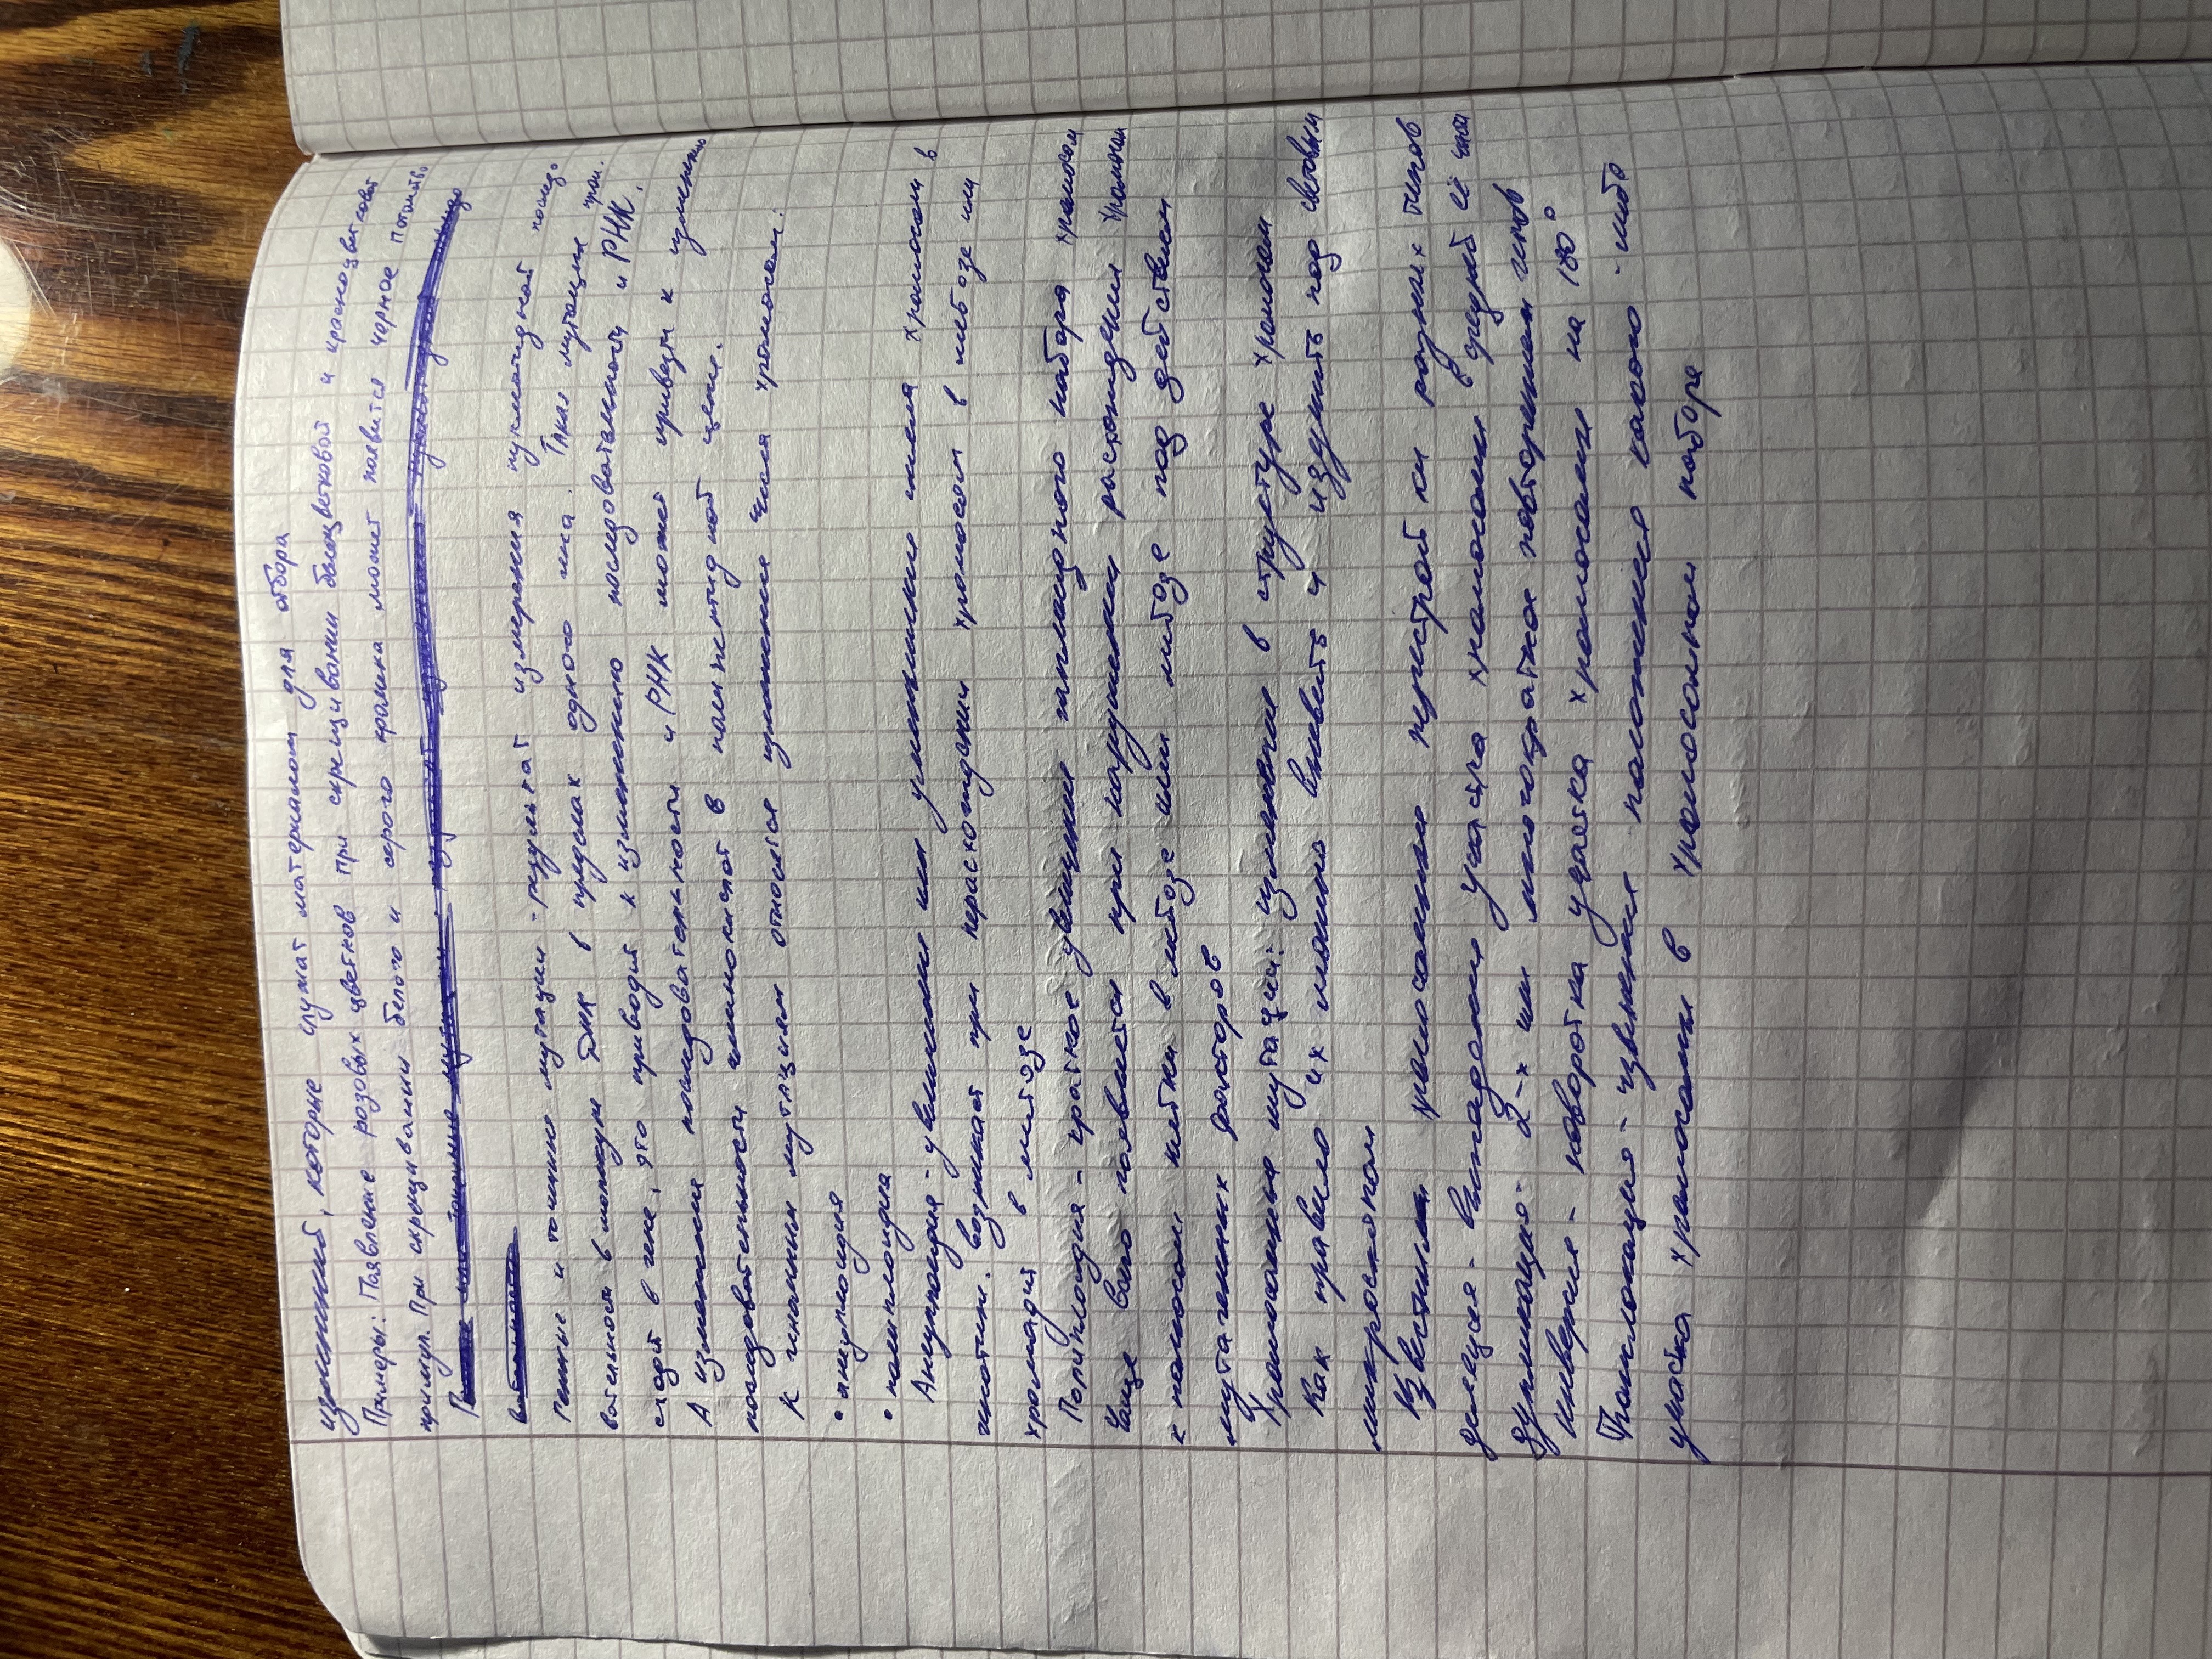 изменений, которые служат материалом для отбора
Примеры: Появление розовых цветков при скрещивании белоцветковой и красноцветковой
примул. При скрещивании белого и серого кролика может появится черное потомство
Генные и точечные мутации - результат измерания нуклеотидной последо
вательности в молекуле ДНК в пределах одного гена. Такая мутация прои.
сходит в гене, это приводит к изменению последовательности и РНК.
А изменение последовательности и РНК может привезти к изменению
последовательности аминокислот в полипептидной цепи.
К геномным мутациям относятся изменение числа хромосом:
• анеуплоидия
• полиплоидия
Анеуплоидия - увеличение или уменьшение числа хромосом в
генотипе. возникает при нерасхождении хромосом в мейозе или
хроматид в митозе
Полиплоидия - кратное увеличение гаплоидного набора хромосом
Чаще всего появляется при нарушении расхождения хромосом
к полюсам клетки в мейозе или митозе под действием
мутагенных факторов
Хромосомные мутации: изменение в структуре хромосом
Как правило их можно выявить и изучить под световым
микроскопом
Известны хромосомные перестройки разных типов
делеция - выпадение участка хромосомы в средней её части
дупликация - 2-х или многократное повторение генов
инверсия - поворотка участка хромосомы на 180°
Транслокация - изменение положения какого-либо
участка хромосомы в хромосомном наборе